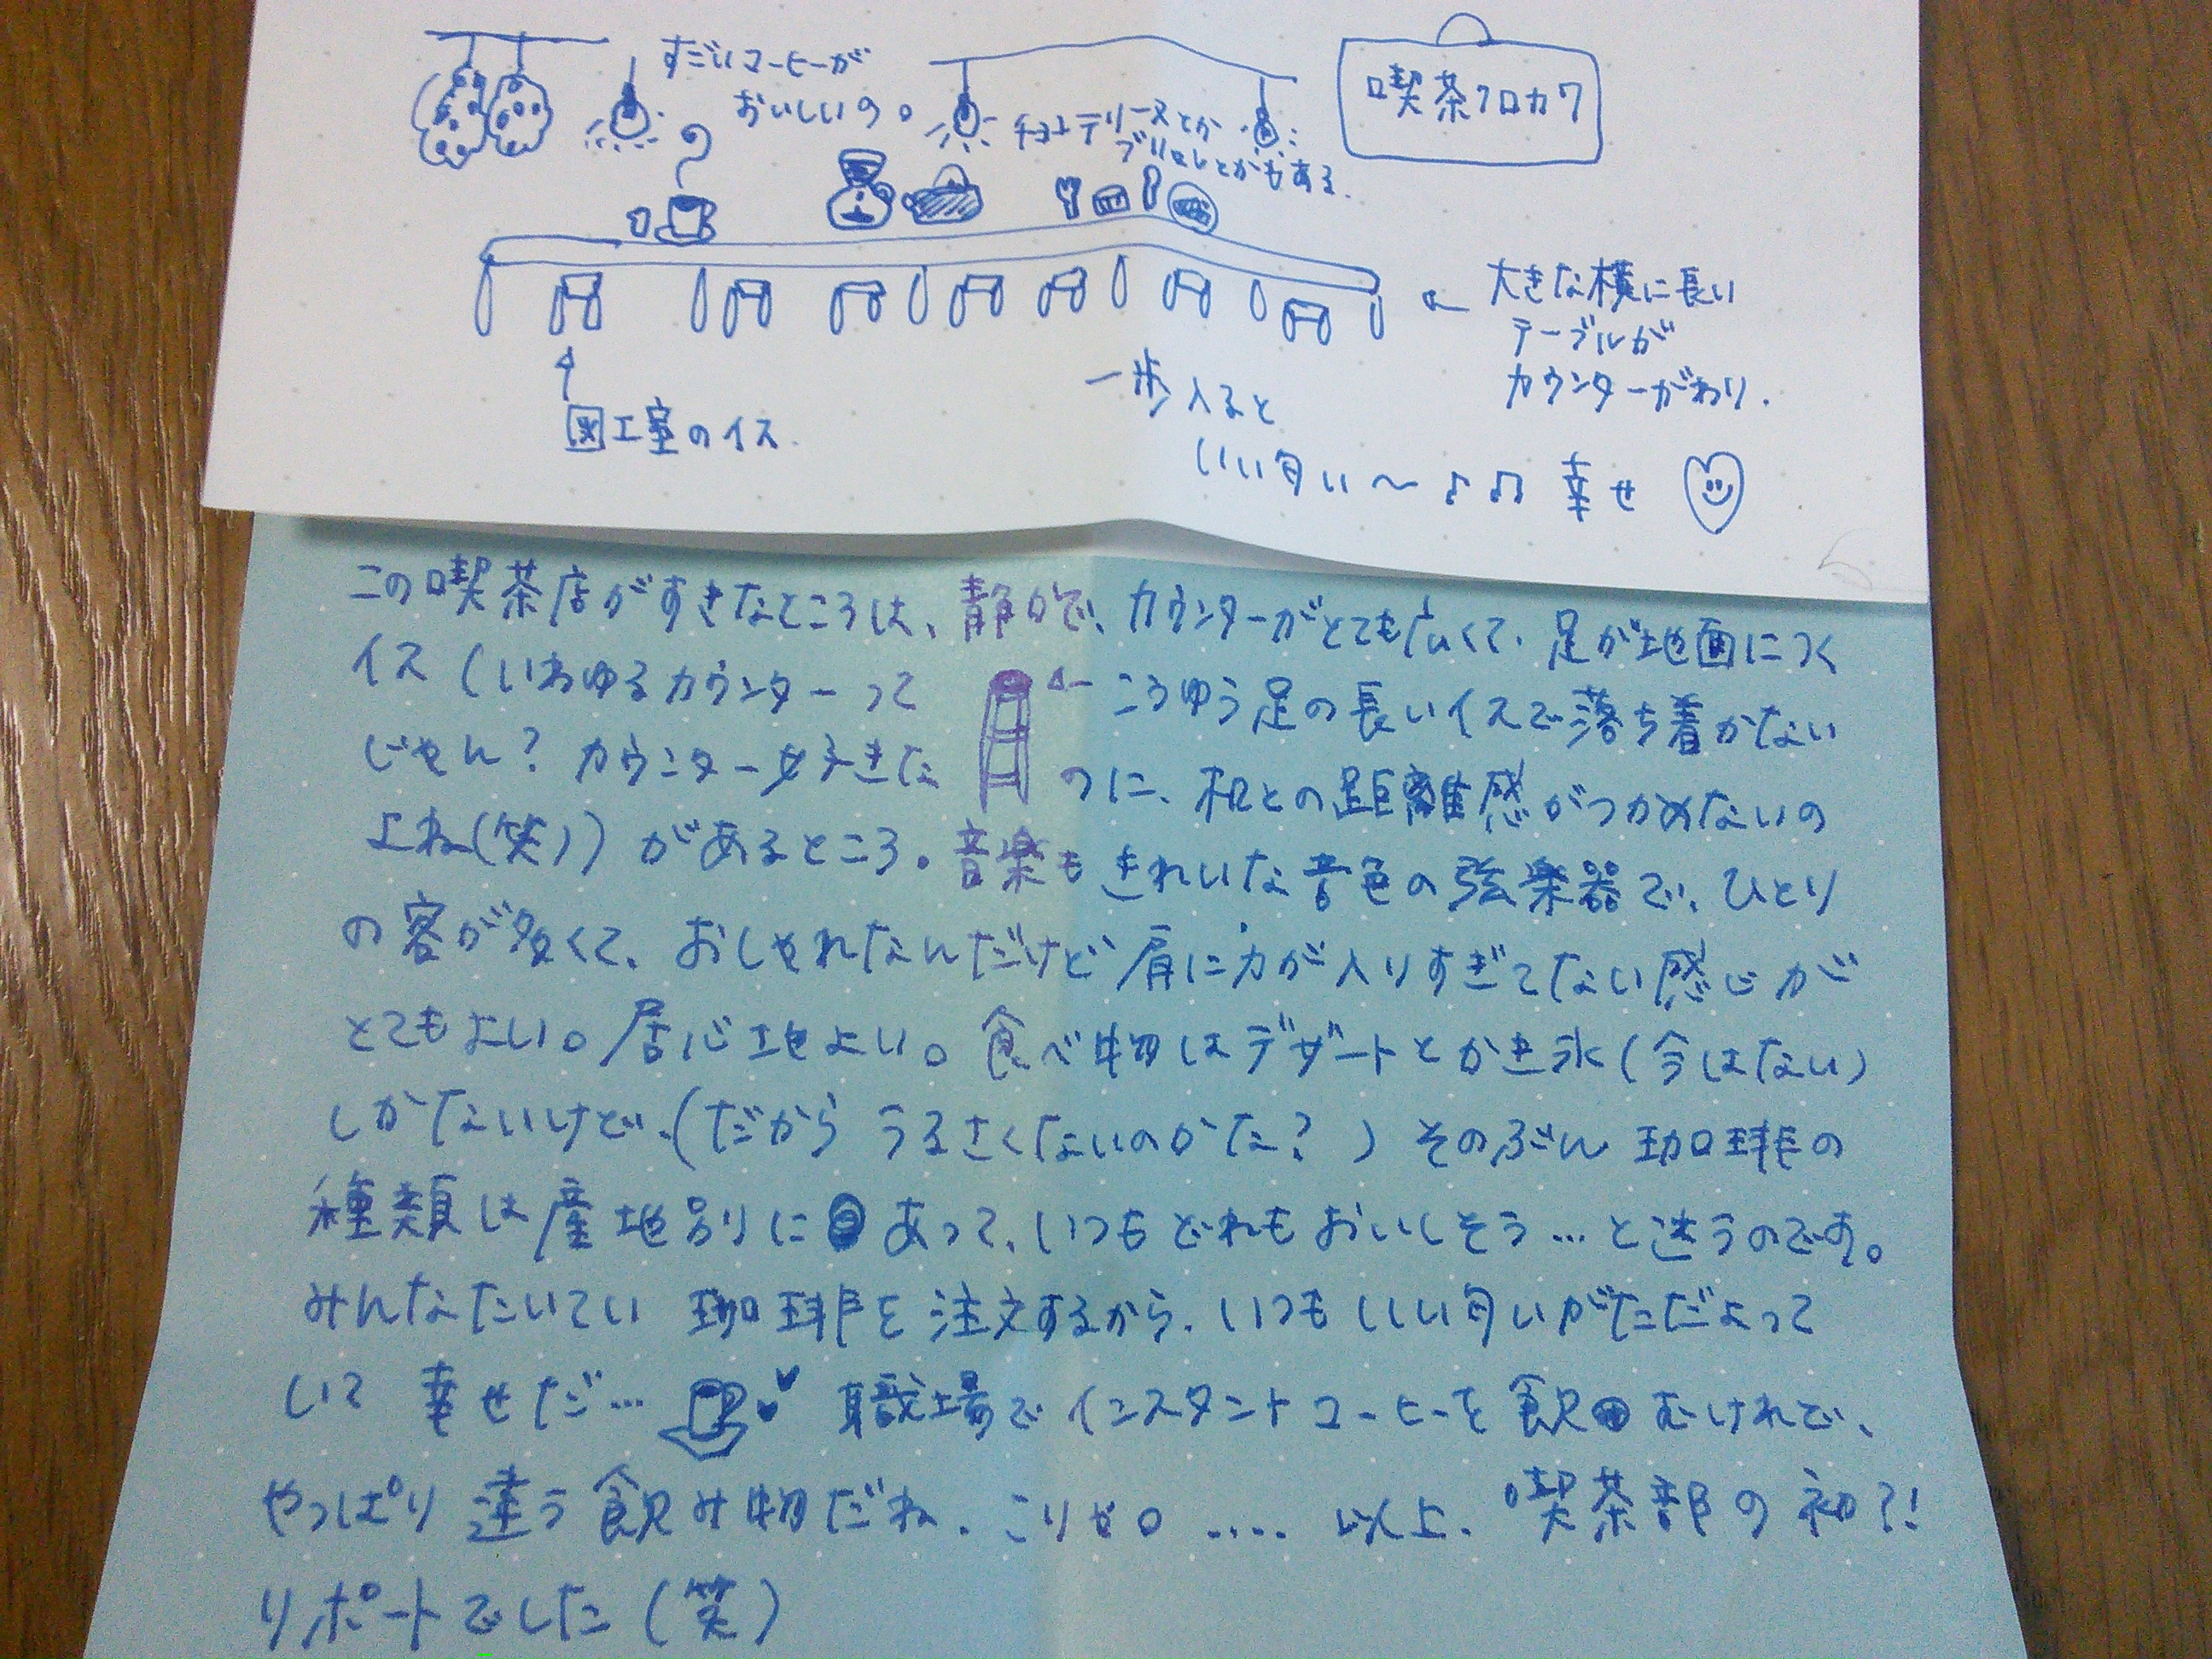 すごいコーヒーが
おいしいの。
チョコテリーヌとか
ブリュレとかもある.
喫茶クロカワ
大きな横に長い
テーブルが
カウンターがわり.
図工室のイス.
一歩入ると
いい匂い〜♪♫ 幸せ
この喫茶店がすきなところは、静かで、カウンターがとても広くて、足が地面につく
イス(いわゆるカウンターって ←こうゆう足の長いイスで落ち着かない
じゃん?カウンター好きな のに、机との距離感がつかめないの
よね(笑))があるところ。音楽もきれいな音色の弦楽器で、ひとり
の客が多くて、おしゃれなんだけど肩に力が入りすぎてない感じが
とてもよい。居心地よい。食べ物はデザートとかき氷(今はない)
しかないけど、(だからうるさくないのかな?)そのぶん珈琲の
種類は産地別にあって、いつもどれもおいしそう…と迷うのです。
みんなたいてい珈琲を注文するから、いつもいい匂いがただよって
いて幸せだ… 職場でインスタントコーヒーを飲むけれど、
やっぱり違う飲み物だね、こりゃ。.... 以上、喫茶部の初?!
リポートでした(笑)